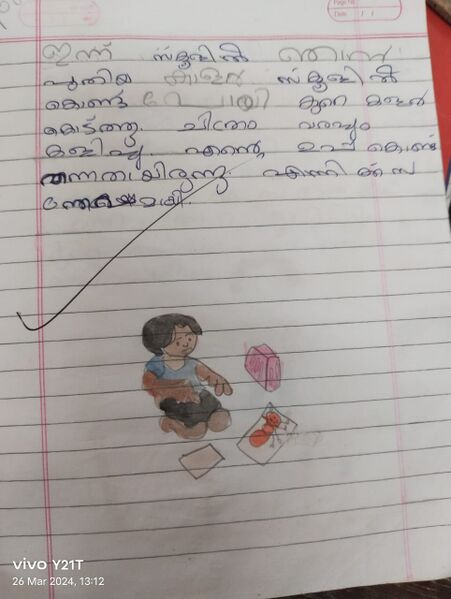 Page No
Date / /
ഇന്ന് സ്കൂളിൽ ഞാൻ
പുതിയ കളർ സ്കൂളിൽ
കൊണ്ട് പോയി കുറെ കളർ
കൊടുത്തു. ചിത്രം വരച്ചും
കളിച്ചു എന്റെ ഉപ്പ കൊണ്ട്
തന്നതായിരുന്നു. എനിക്ക് സ
ന്തോഷമായി.
vivo Y21T
26 Mar 2024, 13:12